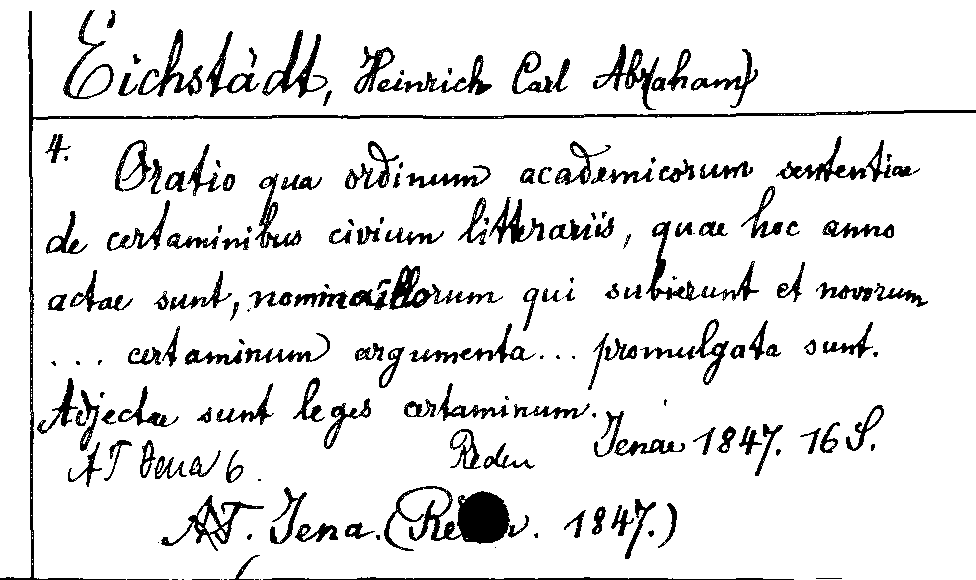 Eichstädt, Heinrich Carl Abr(aham)
4.
Oratio qua ordinum academicorum sententiae
de certaminibus civium litterariis, quae hoc anno
actae sunt, nomina illorum qui subierunt et novorum
... certaminum argumenta... promulgata sunt.
Adjectae sunt leges certaminum.
Jenae 1847. 16 S.
AT Jena 6. Reden
AT. Jena. (Reden. 1847.)